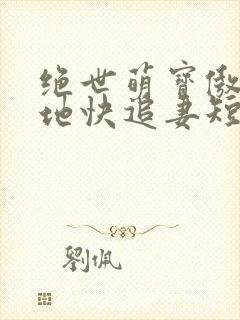 绝世萌寶傲
地快追妻短
劉佩